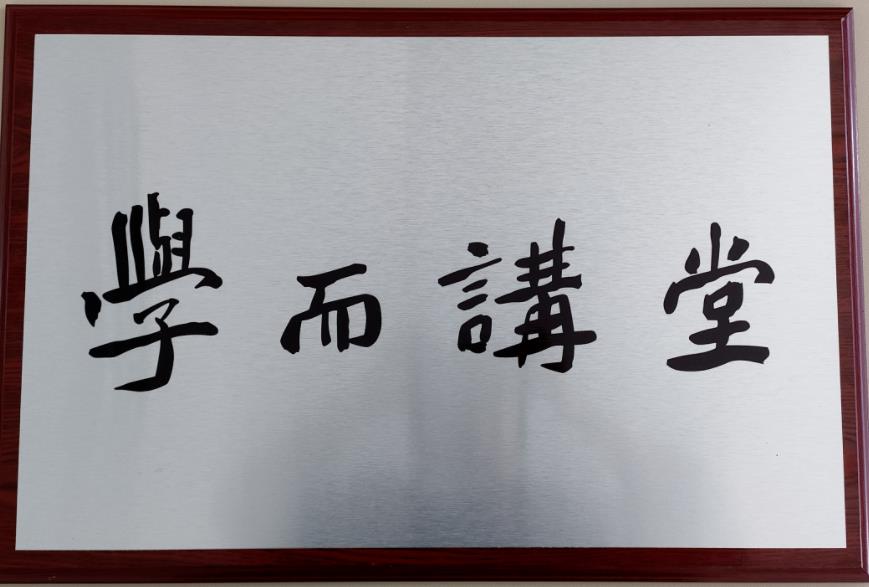 學而講堂